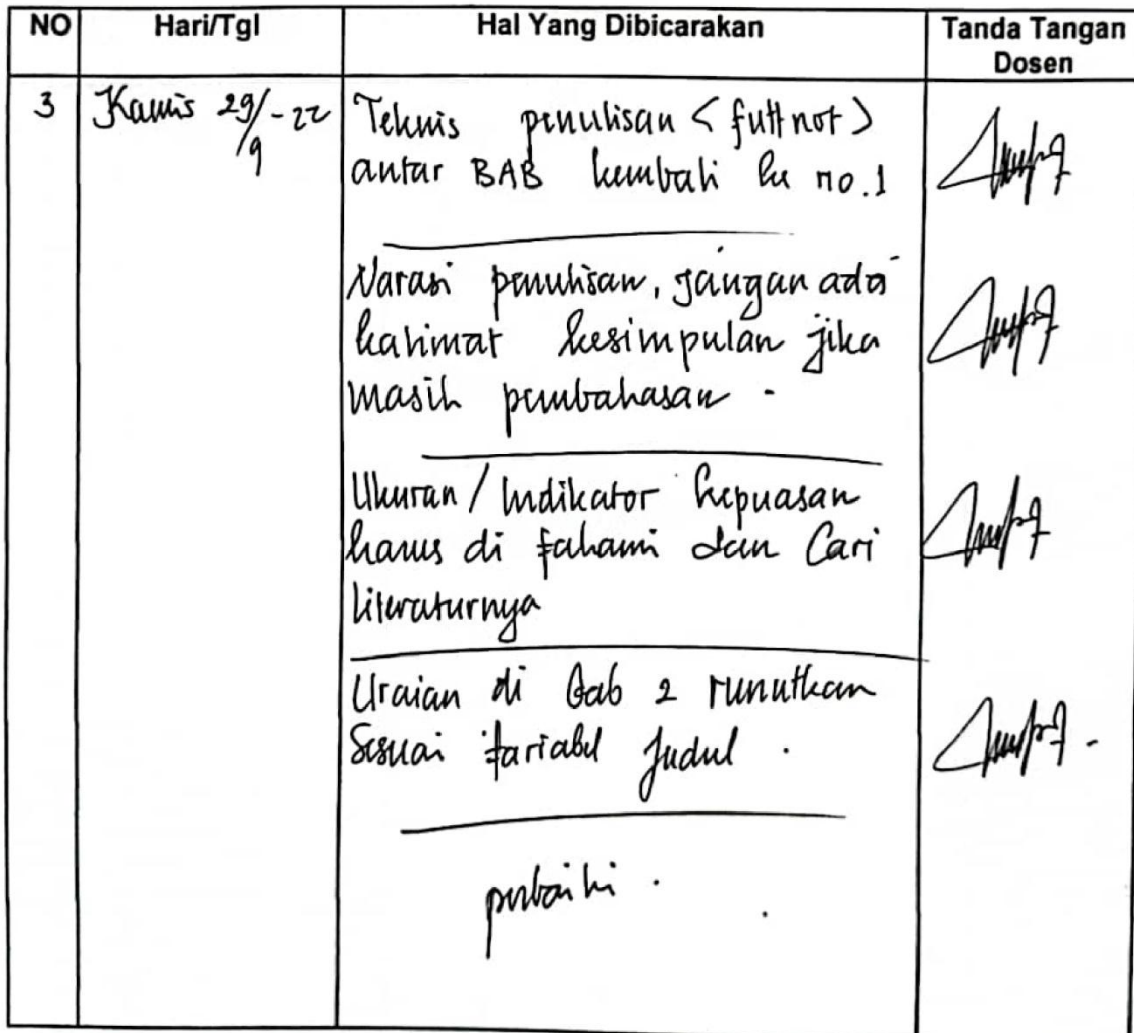 NO Hari/Tgl Hal Yang Dibicarakan Tanda Tangan
Dosen
3 Kamis 29/9-22 Teknis penulisan < futtnot >
antar BAB kembali ke no.1
Narasi penulisan, jangan ada
kalimat kesimpulan jika
masih pembahasan -
Ukuran / Indikator kepuasan
harus di fahami dan Cari
literaturnya
Uraian di Bab 2 runutkan
Sesuai fariabel Judul .
perbaiki .